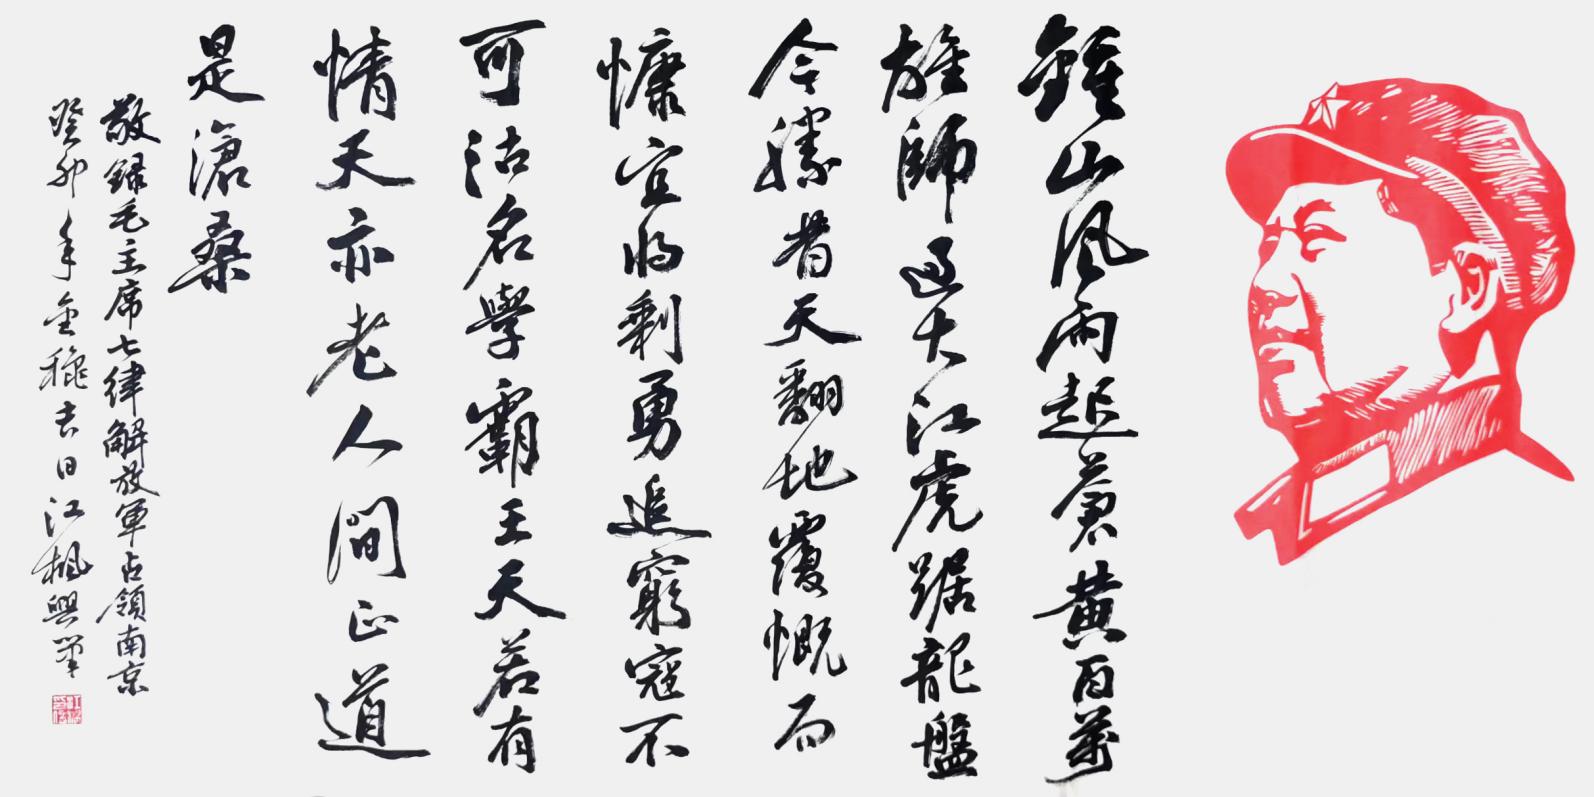 鍾山風雨起蒼黄百萬
雄師過大江虎踞龍盤
今勝昔天翻地覆慨而
慷宜将剩勇追窮寇不
可沽名學霸王天若有
情天亦老人間正道
是滄桑
敬録毛主席七律解放軍占領南京
癸卯年金穐吉日江楓興筆